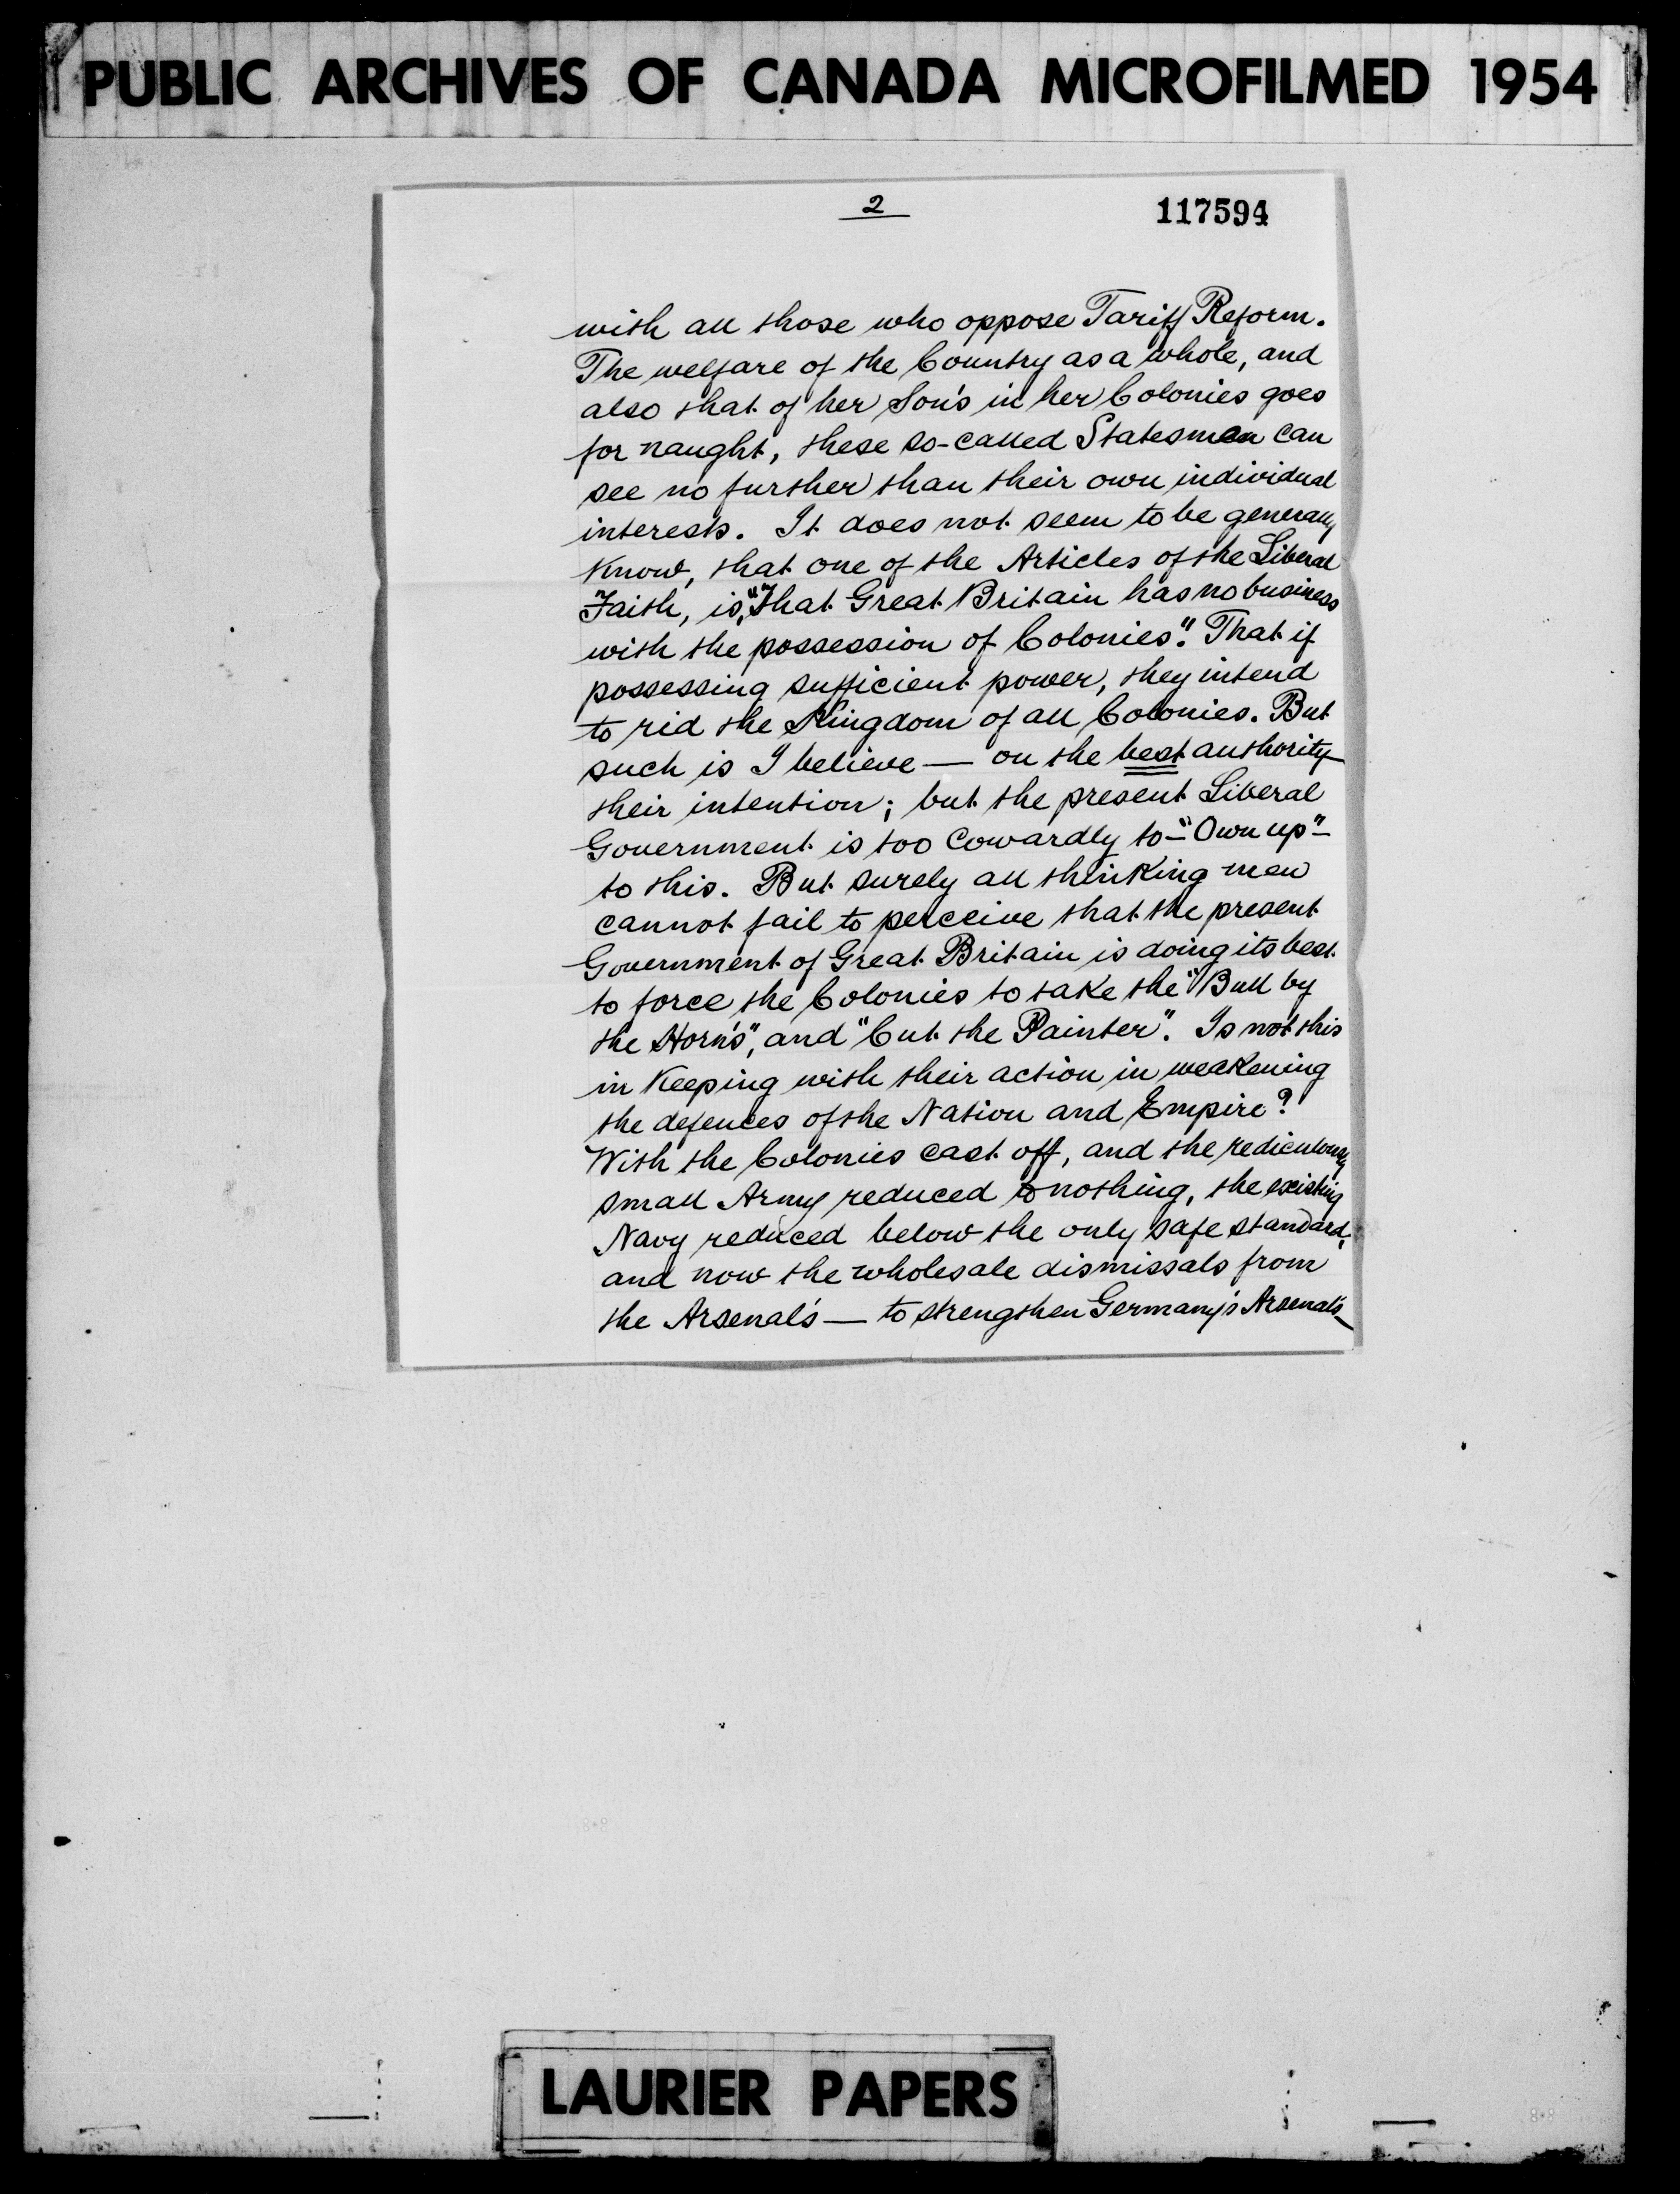 PUBLIC ARCHIVES OF CANADA MICROFILMED 1954
2
117594
with all those who oppose Tariff Reform.
The welfare of the Country as a whole, and
also that of her Son's in her Colonies goes
for naught, these so-called Statesmen can
see no further than their own individual
interests. It does not seem to be generally
Know, that one of the Articles of the Liberal
Faith, is, "That Great Britain has no business
with the possession of Colonies". That if
possessing sufficient power, they intend
to rid the Kingdom of all Colonies. But
such is I believe — on the best authority —
their intention; but the present Liberal
Government is too Cowardly to - "Own up" -
to this. But surely all thinking men
cannot fail to perceive that the present
Government of Great Britain is doing its best
to force the Colonies to take the "Bull by
the Horn's", and "Cut the Painter". Is not this
in Keeping with their action in weakening
the defences of the Nation and Empire?
With the Colonies cast off, and the rediculously
small Army reduced to nothing, the existing
Navy reduced below the only safe standard,
and now the wholesale dismissals from
the Arsenal's — to strengthen Germany's Arsenal's —
LAURIER PAPERS